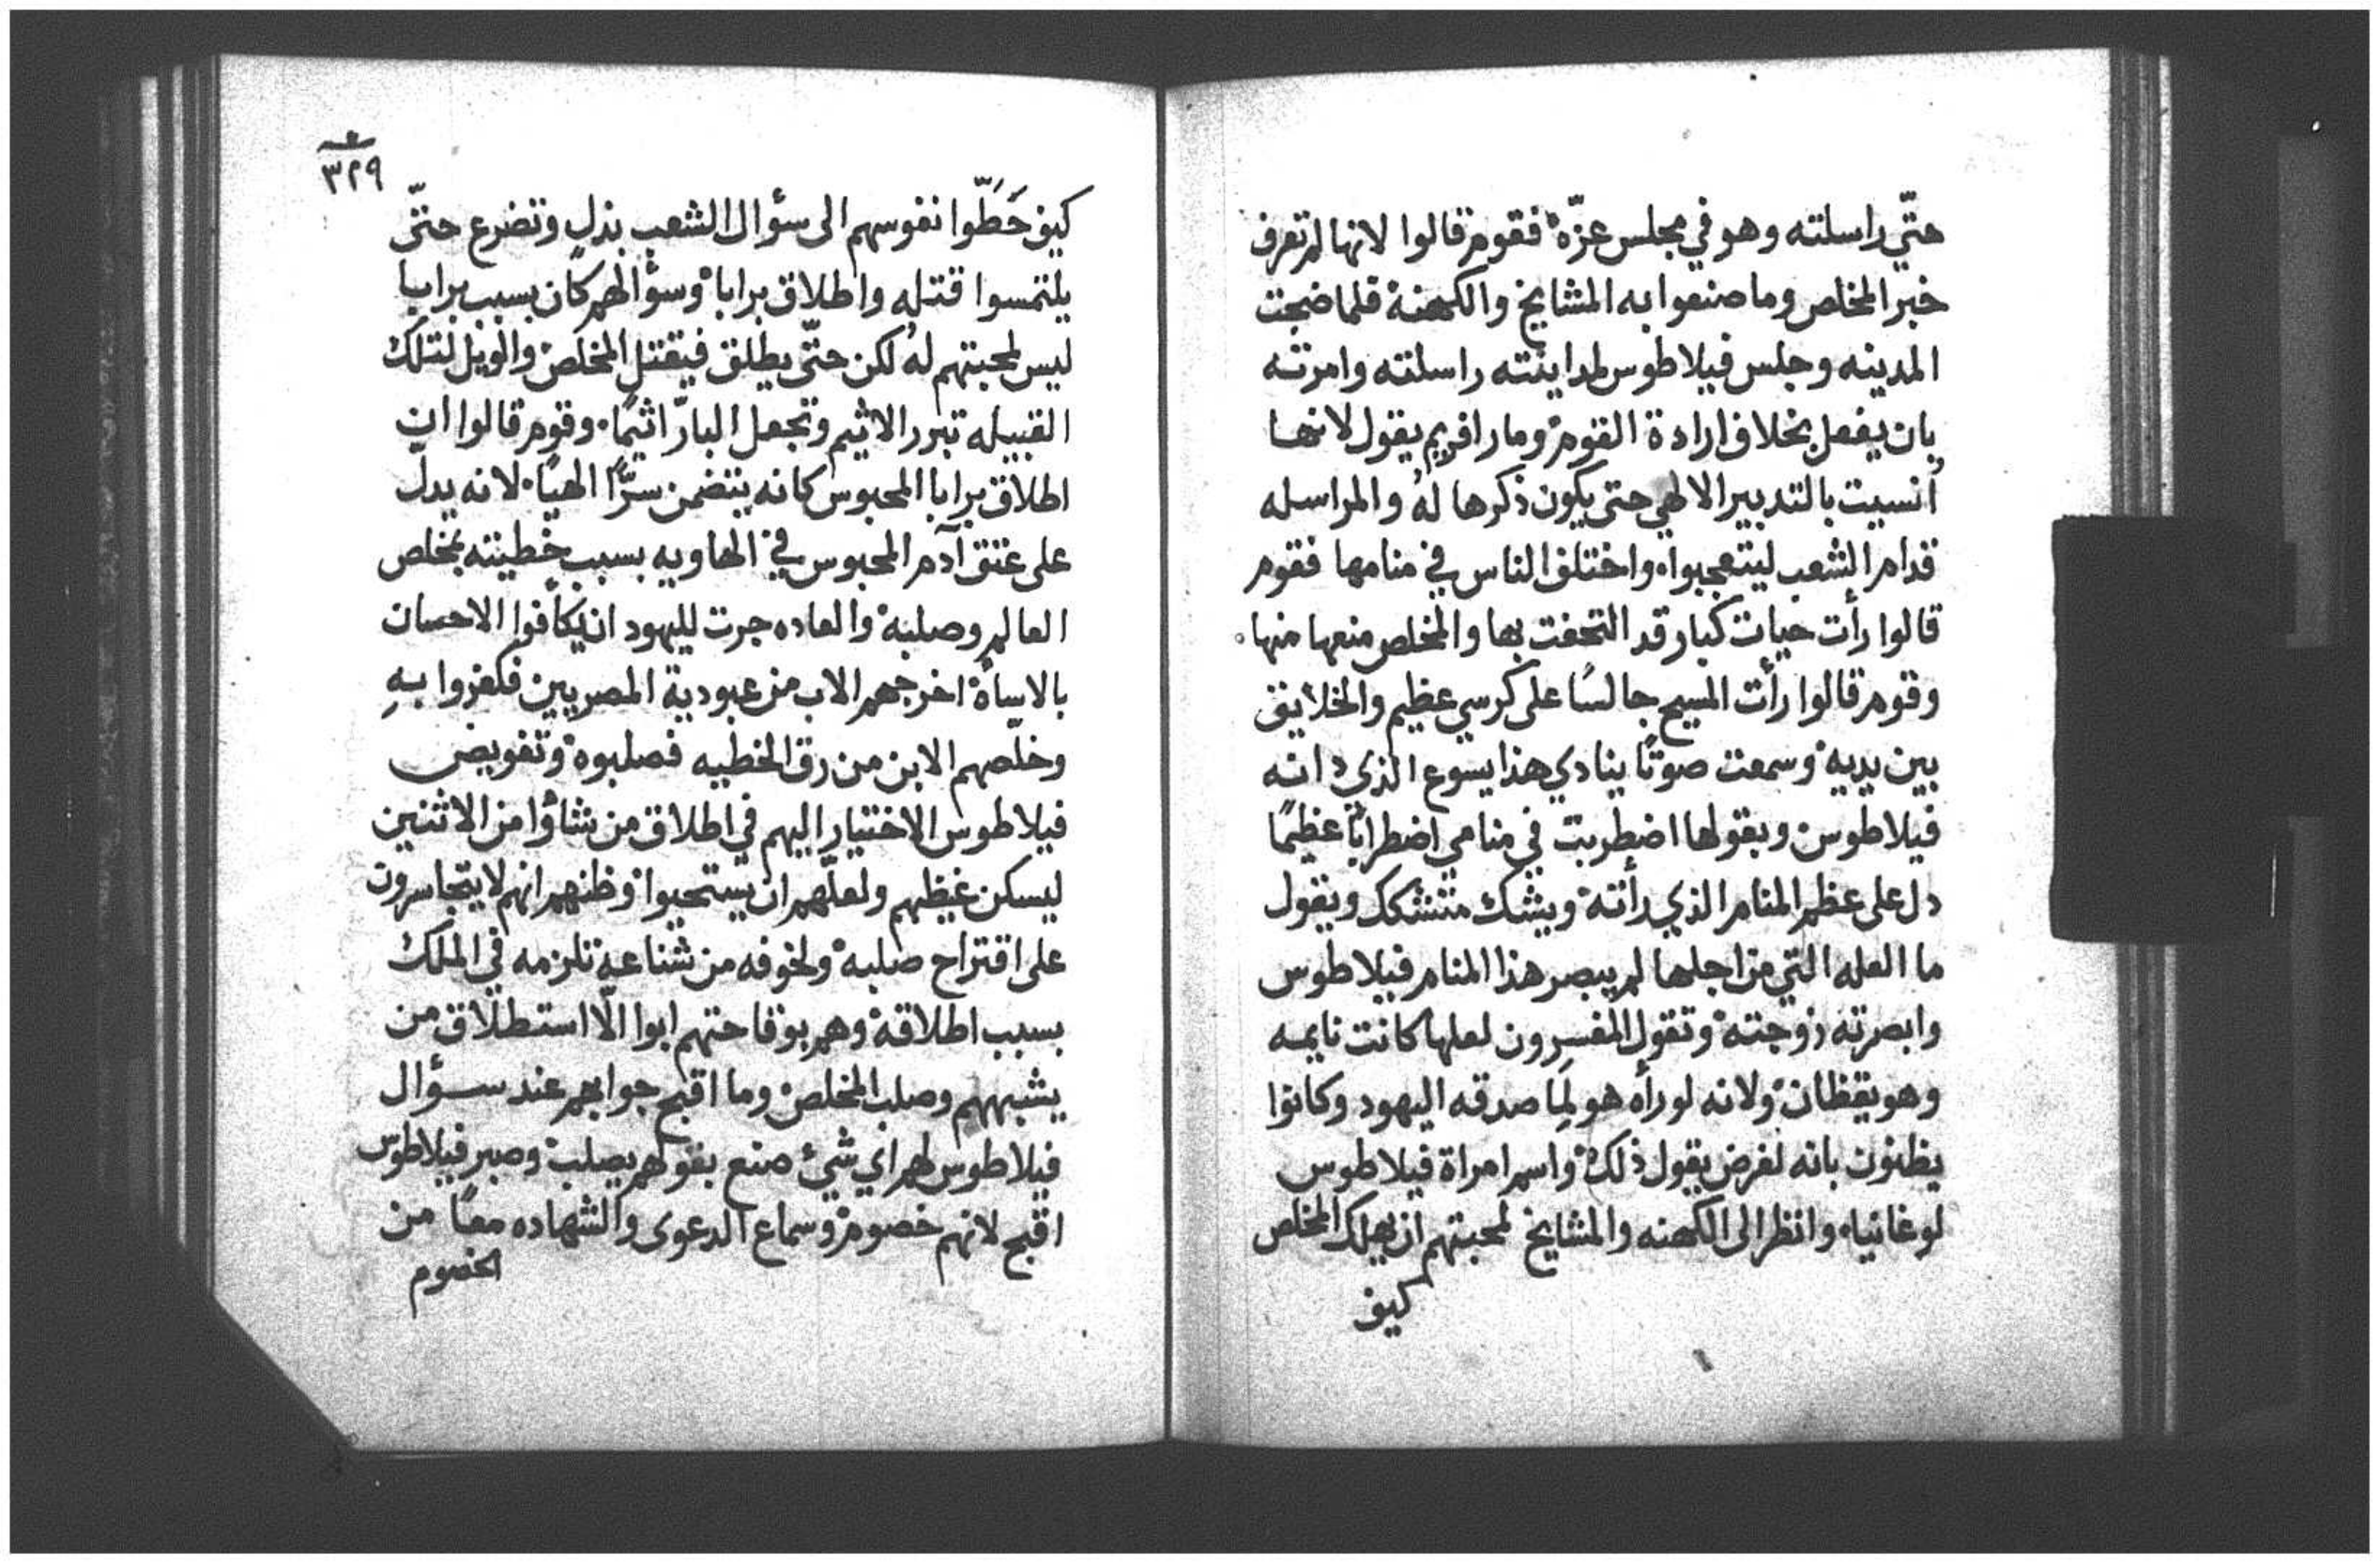 حتّي راسلته وهو في مجلس عزّه فقوم قالوا لانها لم تعرف
خبر المخلص وما صنعوا به المشايخ والكهنة فلما ضجت
المدينه وجلس فيلاطوس لمداينته راسلته وامرته
بان يفعل بخلاف ارادة القوم ومار افريم يقول لانها
أنسيت بالتدبير الالهي حتى يكون ذكرها لهُ والمراسله
قدام الشعب ليتعجبوا واختلف الناس في منامها فقوم
قالوا رأت حيات كبار قد التحفت بها والمخلص منعها منها
وقوم قالوا رأت المسيح جالسًا على كرسي عظيم والخلايق
بين يديه وسمعت صوتًا ينادي هذا يسوع الذي دانه
فيلاطوس وبقولها اضطربت في منامي اضطرابًا عظيمًا
دل على عظم المنام الذي رأته ويشك متشكك ويقول
ما العله التي من اجلها لم يبصر هذا المنام فيلاطوس
وابصرته زوجته وتقول المفسرون لعلها كانت نايمه
وهو يقظان ولانه لو رأه هو لِمَا صدقه اليهود وكانوا
يظنون بانه لغرض يقول ذلك واسم امراة فيلاطوس
لوغانيا وانظر الى الكهنه والمشايخ لمحبتهم ان يهلك المخلص
كيف
٣٢٩
كيف حَطَّوا نفوسهم الى سؤال الشعب بذل وتضرع حتّى
يلتمسوا قتله واطلاق برابا وسؤالهم كان بسبب برابا
ليس لمحبتهم لهُ لكن حتّى يطلق فيقتل المخلص والويل لتلك
القبيله تبرر الاثيم وتجعل البارّ اثيمًا وقوم قالوا ان
اطلاق برابا المحبوس كانه يتضمن سرًّا الهيًا لانه يدلّ
على عتق آدم المحبوس في الهاويه بسبب خطيته بمخلص
العالم وصلبه والعاده جرت لليهود ان يكافوا الاحسان
بالاسأة اخرجهم الاب من عبودية المصريين فكفروا بهِ
وخلّصهم الابن من رق الخطيه فصلبوه وتفويض
فيلاطوس الاختيار اليهم في اطلاق من شاؤا من الاثنين
ليسكن غيظهم ولعلّهم ان يستحيوا وظنهم انهم لا يتجاسرون
على اقتراح صلبه ولخوفه من شناعه تلزمه في الملك
بسبب اطلاقه وهم بوقاحتهم ابوا الّا استطلاق من
يشبههم وصلب المخلص وما اقبح جوابهم عند سؤال
فيلاطوس لهم اي شيئ صنع بقولهم يصلب وصبر فيلاطوس
اقبح لانهم خصوم وسماع الدعوى والشهاده معًا من
الخصوم